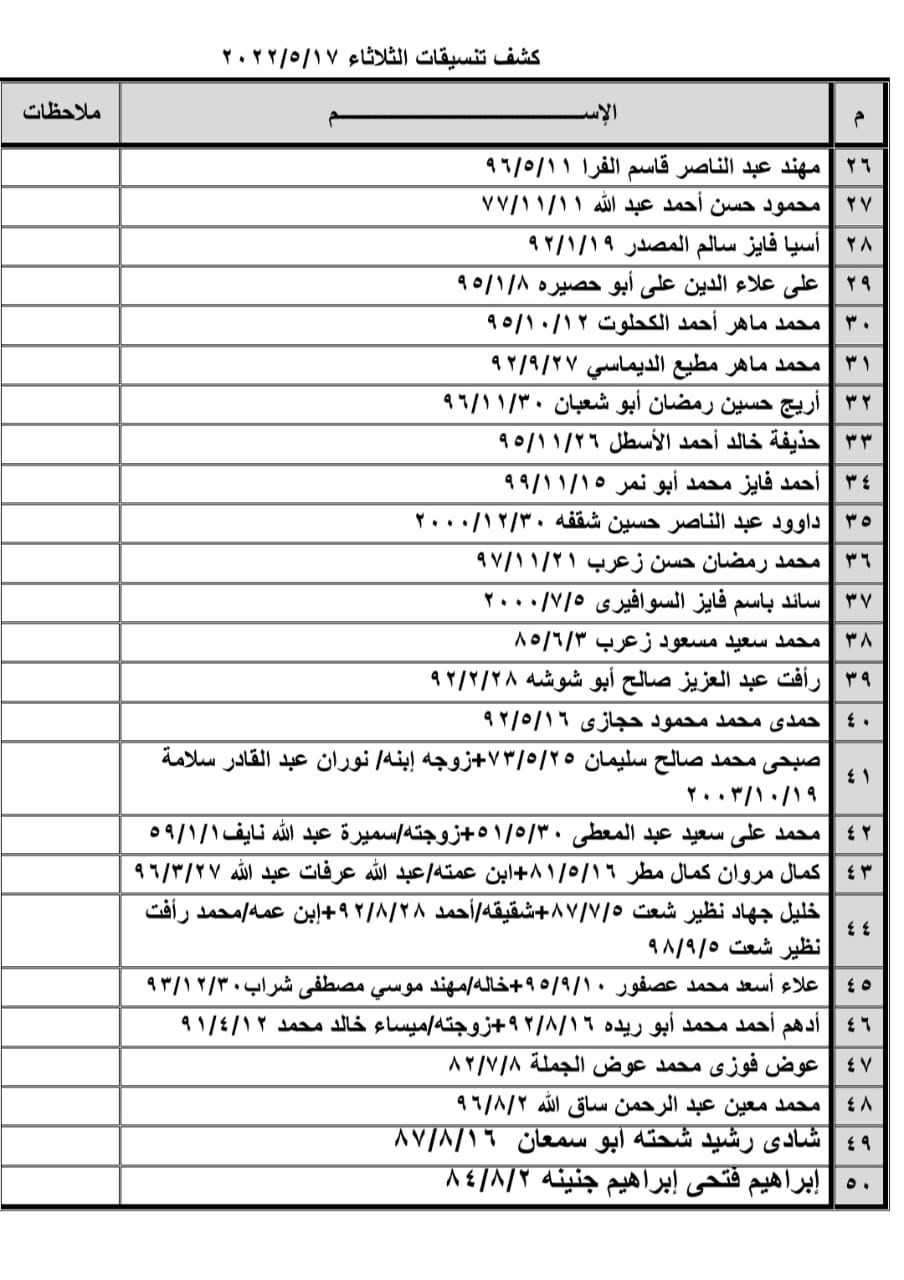 كشف تنسيقات الثلاثاء ٢٠٢٢/٥/١٧
م الإســـــــــــم ملاحظات
٢٦ مهند عبد الناصر قاسم الفرا ٩٦/٥/١١
٢٧ محمود حسن أحمد عبد الله ٧٧/١١/١١
٢٨ أسيا فايز سالم المصدر ٩٢/١/١٩
٢٩ على علاء الدين على أبو حصيره ٩٥/١/٨
٣٠ محمد ماهر أحمد الكحلوت ٩٥/١٠/١٢
٣١ محمد ماهر مطيع الديماسي ٩٢/٩/٢٧
٣٢ أريج حسين رمضان أبو شعبان ٩٦/١١/٣٠
٣٣ حذيفة خالد أحمد الأسطل ٩٥/١١/٢٦
٣٤ أحمد فايز محمد أبو نمر ٩٩/١١/١٥
٣٥ داوود عبد الناصر حسين شقفه ٢٠٠٠/١٢/٣٠
٣٦ محمد رمضان حسن زعرب ٩٧/١١/٢١
٣٧ سائد باسم فايز السوافيرى ٢٠٠٠/٧/٥
٣٨ محمد سعيد مسعود زعرب ٨٥/٦/٣
٣٩ رأفت عبد العزيز صالح أبو شوشه ٩٢/٢/٢٨
٤٠ حمدى محمد محمود حجازى ٩٢/٥/١٦
٤١ صبحى محمد صالح سليمان ٧٣/٥/٢٥+زوجه إبنه/ نوران عبد القادر سلامة
٢٠٠٣/١٠/١٩
٤٢ محمد على سعيد عبد المعطى ٥١/٥/٣٠+زوجته/سميرة عبد الله نايف٥٩/١/١
٤٣ كمال مروان كمال مطر ٨١/٥/١٦+ابن عمته/عبد الله عرفات عبد الله ٩٦/٣/٢٧
٤٤ خليل جهاد نظير شعت ٨٧/٧/٥+شقيقه/أحمد ٩٢/٨/٢٨+إبن عمه/محمد رأفت
نظير شعت ٩٨/٩/٥
٤٥ علاء أسعد محمد عصفور ٩٥/٩/١٠+خاله/مهند موسي مصطفى شراب٩٣/١٢/٣٠
٤٦ أدهم أحمد محمد أبو ريده ٩٢/٨/١٦+زوجته/ميساء خالد محمد ٩١/٤/١٢
٤٧ عوض فوزى محمد عوض الجملة ٨٢/٧/٨
٤٨ محمد معين عبد الرحمن ساق الله ٩٦/٨/٢
٤٩ شادى رشيد شحته أبو سمعان ٨٧/٨/١٦
٥٠ إبراهيم فتحى إبراهيم جنينه ٨٤/٨/٢